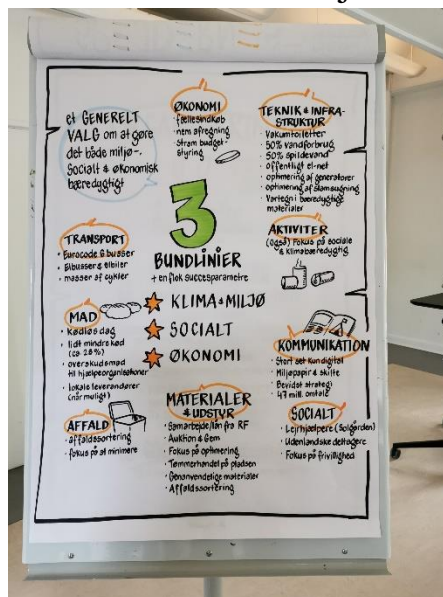 et GENERELT
VALG om at gøre
det både miljø-.
Socialt & økonomisk
bæredygtigt
ØKONOMI
· fællesindkøb
· nem afregning
· Stram budget-
styring
TEKNIK & INFRA-
STRUKTUR
· Vakumtoiletter
· 50% vandforbrug
· 50% spildevand
· offentligt el-net
· optimering af generatorer
· optimering af slamsugning
· Vartegn i bæredygtige
materialer
3
BUNDLINIER
+ en flok succesparametre
KLIMA & MILJØ
SOCIALT
ØKONOMI
TRANSPORT
· Eurocode 6 busser
· Elbusser & elbiler
· masser af cykler
AKTIVITER
(også) Fokus på sociale
& Klimabæredygtig
MAD
· Kødløs dag
· lidt mindre kød
(ca. 28%)
· overskudsmad
til hjælpeorganisationer
· lokale leverandører
(når muligt)
KOMMUNIKATION
· Stort set kun digital
· Miljøpapir & skilte
· Bevidst strategi
· 47 mill. omtale
AFFALD
· Affaldssortering
· fokus på at minimere
MATERIALER
& UDSTYR
· Samarbejde/lån fra RF
· Auktion & Gem
· Fokus på optimering
· Tømmerhandel på pladsen
· Genanvendelige materialer
· Affaldssortering
SOCIALT
· Lejrhjælpere (Solgården)
· Udenlandske deltagere
· Fokus på frivillighed